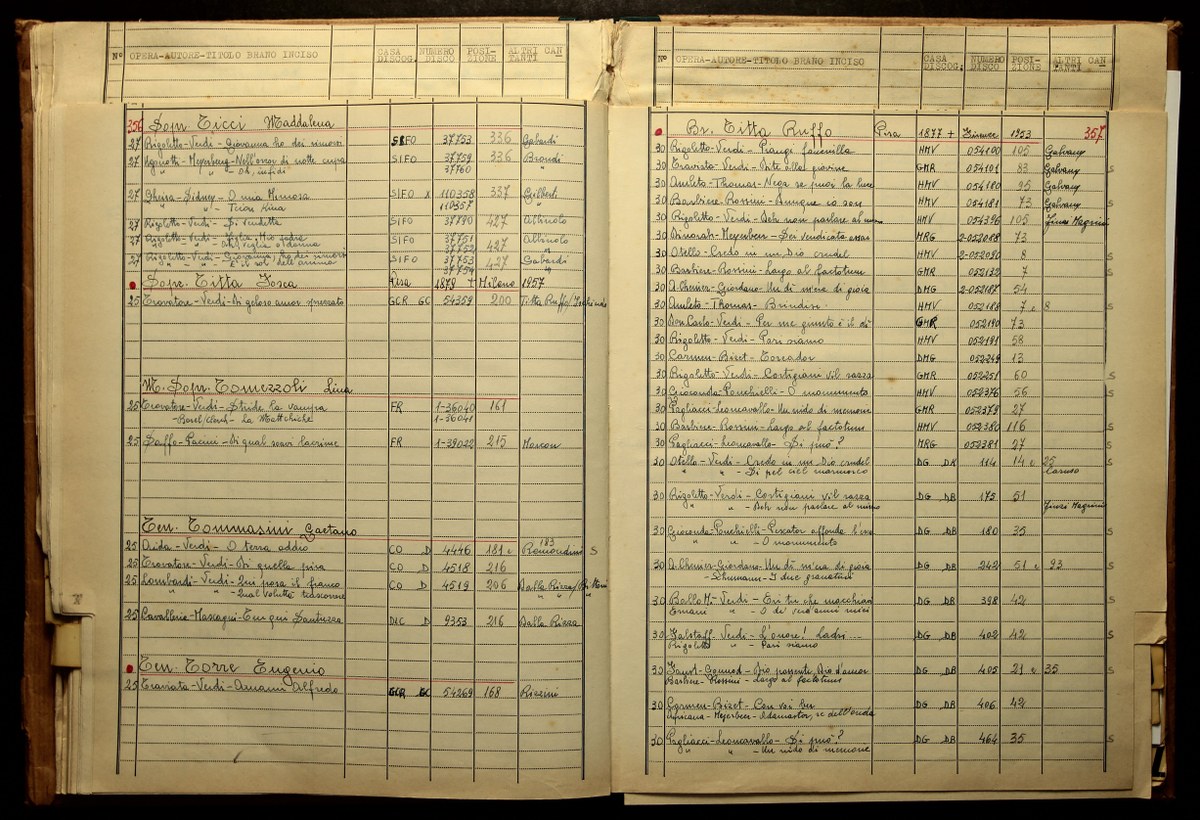 Nº OPERA-AUTORE-TITOLO BRANO INCISO CASA DISCOG. NUMERO DISCO POSIZIONE ALTRI CANTANTI
356 Sopr. Ticci Maddalena
27 Rigoletto-Verdi-Giovanna ho dei rimorsi SIFO 37753 336 Gabardi
27 Ugonotti-Meyerberg-Nell'orror di notte cupa SIFO 37759 336 Biondi
" " - Oh, infidi 37760 "
27 Gheisa-Sidney-O mia Mimosa SIFO X 110358 337 Gilberti
" " - 110357
27 Rigoletto-Verdi-Si vendetta SIFO 37790 427 Albinolo
27 Rigoletto-Verdi-Figlia, Mio padre SIFO 37751 427 Albinolo
" " - Ah! veglia o donna 37752 "
27 Rigoletto-Verdi-Giovanna, ho dei rimorsi SIFO 37753 427 Gabardi
" " - È il sol dell'anima 37754 "
Sopr. Titta Fosca Pisa 1879 + Milano 1957
25 Trovatore-Verdi-Di geloso amor sprezzato GCR GC 54359 200 Titta Ruffo/
M. Sopr. Tomezzoli Lina
25 Trovatore-Verdi-Stride la vampa FR 1-36040 161
- la Mattchiche 1-36041
25 Saffo-Pacini-Di quai soavi lacrime FR 1-39022 215
Ten. Tommasini Gaetano
25 Aida-Verdi-O terra addio CO D 4446 181 e 183 Romondini S
25 Trovatore-Verdi-Di quella pira CO D 4518 216
25 Lombardi-Verdi-Qui posa il fianco CO D 4519 206 Dalla Rizza/
" " - Qual voluttà trascorrere " "
25 Cavalleria-Mascagni-Tu qui Santuzza DIC D 9353 216 Dalla Rizza
Ten. Torre Eugenio
25 Traviata-Verdi-Amami Alfredo GCR GC 54269 168 Rizzini
Nº OPERA-AUTORE-TITOLO BRANO INCISO CASA DISCOG. NUMERO DISCO POSIZIONE ALTRI CANTANTI
Br. Titta Ruffo Pisa 1877 + Firenze 1953 357
30 Rigoletto-Verdi-Piangi fanciulla HMV 054100 105 Galvany
30 Traviata-Verdi-Dite alla giovine GMR 054101 83 Galvany S
30 Amleto-Thomas-Nega se puoi la luce HMV 054180 95 Galvany
30 Barbiere-Rossini-Dunque io son HMV 054181 73 Galvany S
30 Rigoletto-Verdi-Deh non parlare al misero HMV 054396 105 Finzi Magrini
30 Dinorah-Meyerbeer-Sei vendicata assai MRG 2-052088 73
30 Otello-Credo in un Dio crudel HMV 2-052090 8 S
30 Barbiere-Rossini-Largo al factotum GMR 052132 7 S
30 A. Chenier-Giordano-Un dì m'era di gioia DMG 2-052187 54
30 Amleto-Thomas-Brindisi HMV 052188 7 e 8 S
30 Don Carlo-Verdi-Per me giunto è il dì GMR 052190 73
30 Rigoletto-Verdi-Pari siamo HMV 052191 58
30 Carmen-Bizet-Toreador DMG 052249 13
30 Rigoletto-Verdi-Cortigiani vil razza GMR 052251 60 S
30 Gioconda-Ponchielli-O monumento HMV 052376 56 S
30 Pagliacci-Leoncavallo-Un nido di memorie GMR 052379 27
30 Barbiere-Rossini-Largo al factotum HMV 052380 116
30 Pagliacci-Leoncavallo-Si può? MRG 052381 27 S
30 Otello-Verdi-Credo in un Dio crudel DG DK 114 14 e 25
" " - Si pel ciel marmoreo Caruso
30 Rigoletto-Verdi-Cortigiani vil razza DG DB 175 51
" " - Deh non parlare al misero Finzi Magrini
30 Gioconda-Ponchielli-Pescator affonda l'esca DG DB 180 35 S
" " - O monumento
30 A. Chenier-Giordano-Un dì m'era di gioia DG DB 242 51 e 93 S
- Schumann-I due granatieri
30 Ballo M.-Verdi-Eri tu che macchiavi DG DB 398 42 S
Ernani " - O de' verd'anni miei
30 Falstaff-Verdi-L'onore! Ladri... DG DB 402 42 S
Rigoletto " - Pari siamo
30 Faust-Gounod-Dio possente, Dio d'amor DG DB 405 21 e 35 S
Barbiere-Rossini-Largo al factotum
30 Carmen-Bizet-Con voi ber DG DB 406 42
Africana-Meyerbeer-Adamastor, re dell'onda
30 Pagliacci-Leoncavallo-Si può? DG DB 464 35 S
" " - Un nido di memorie